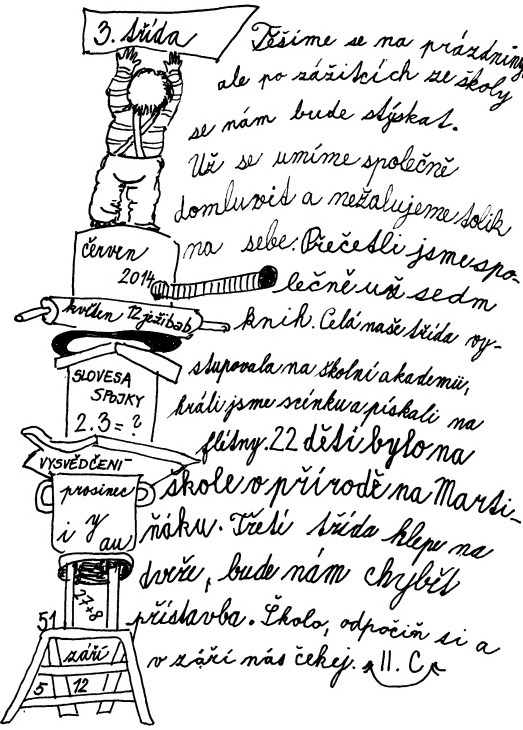 3. třída
Těšíme se na prázdniny,
ale po zážitcích ze školy
se nám bude stýskat.
Už se umíme společně
domluvit a nežalujeme tolik
na sebe. Přečetli jsme spo-
lečně už sedm
knih. Celá naše třída vy-
stupovala na školní akademii,
hráli jsme scénku a pískali na
flétny. 22 dětí bylo na
škole v přírodě na Marti-
ňáku. Třetí třída klepe na
dveře, bude nám chybět
přístavba. Školo, odpočiň si a
v září nás čekej. II. C
červen
2014
květen 12 ježibab
SLOVESA
SPOJKY
2.3=?
VYSVĚDČENÍ
prosinec
i y
au
27+8
51
září
5 12